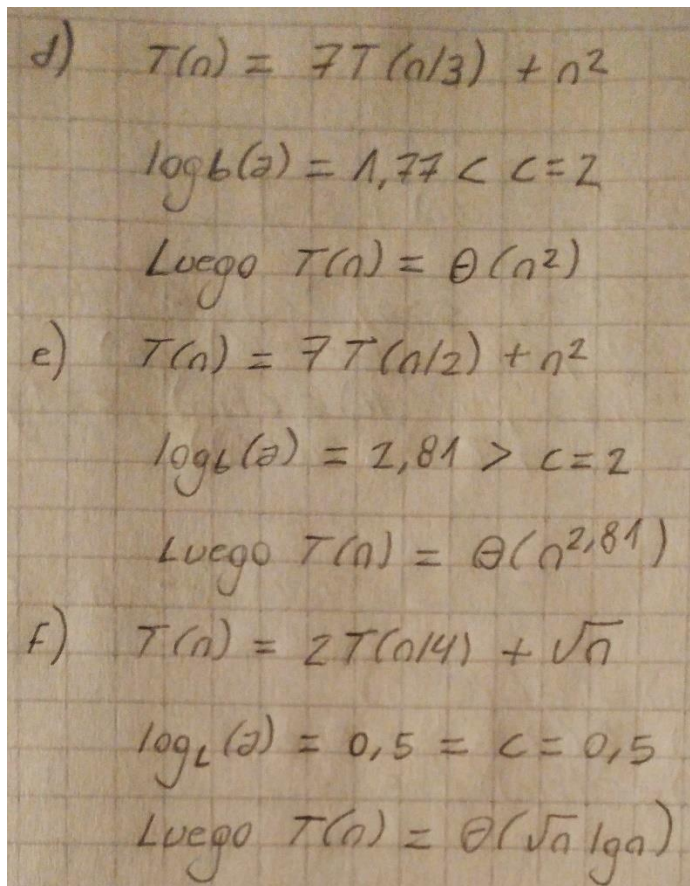 d) T(n) = 7T(n/3) + n²
log b(a) = 1,77 < c = 2
Luego T(n) = Θ(n²)
e) T(n) = 7T(n/2) + n²
log_b(a) = 2,81 > c = 2
Luego T(n) = Θ(n^2,81)
f) T(n) = 2T(n/4) + √n
log_b(a) = 0,5 = c = 0,5
Luego T(n) = Θ(√n lgn)